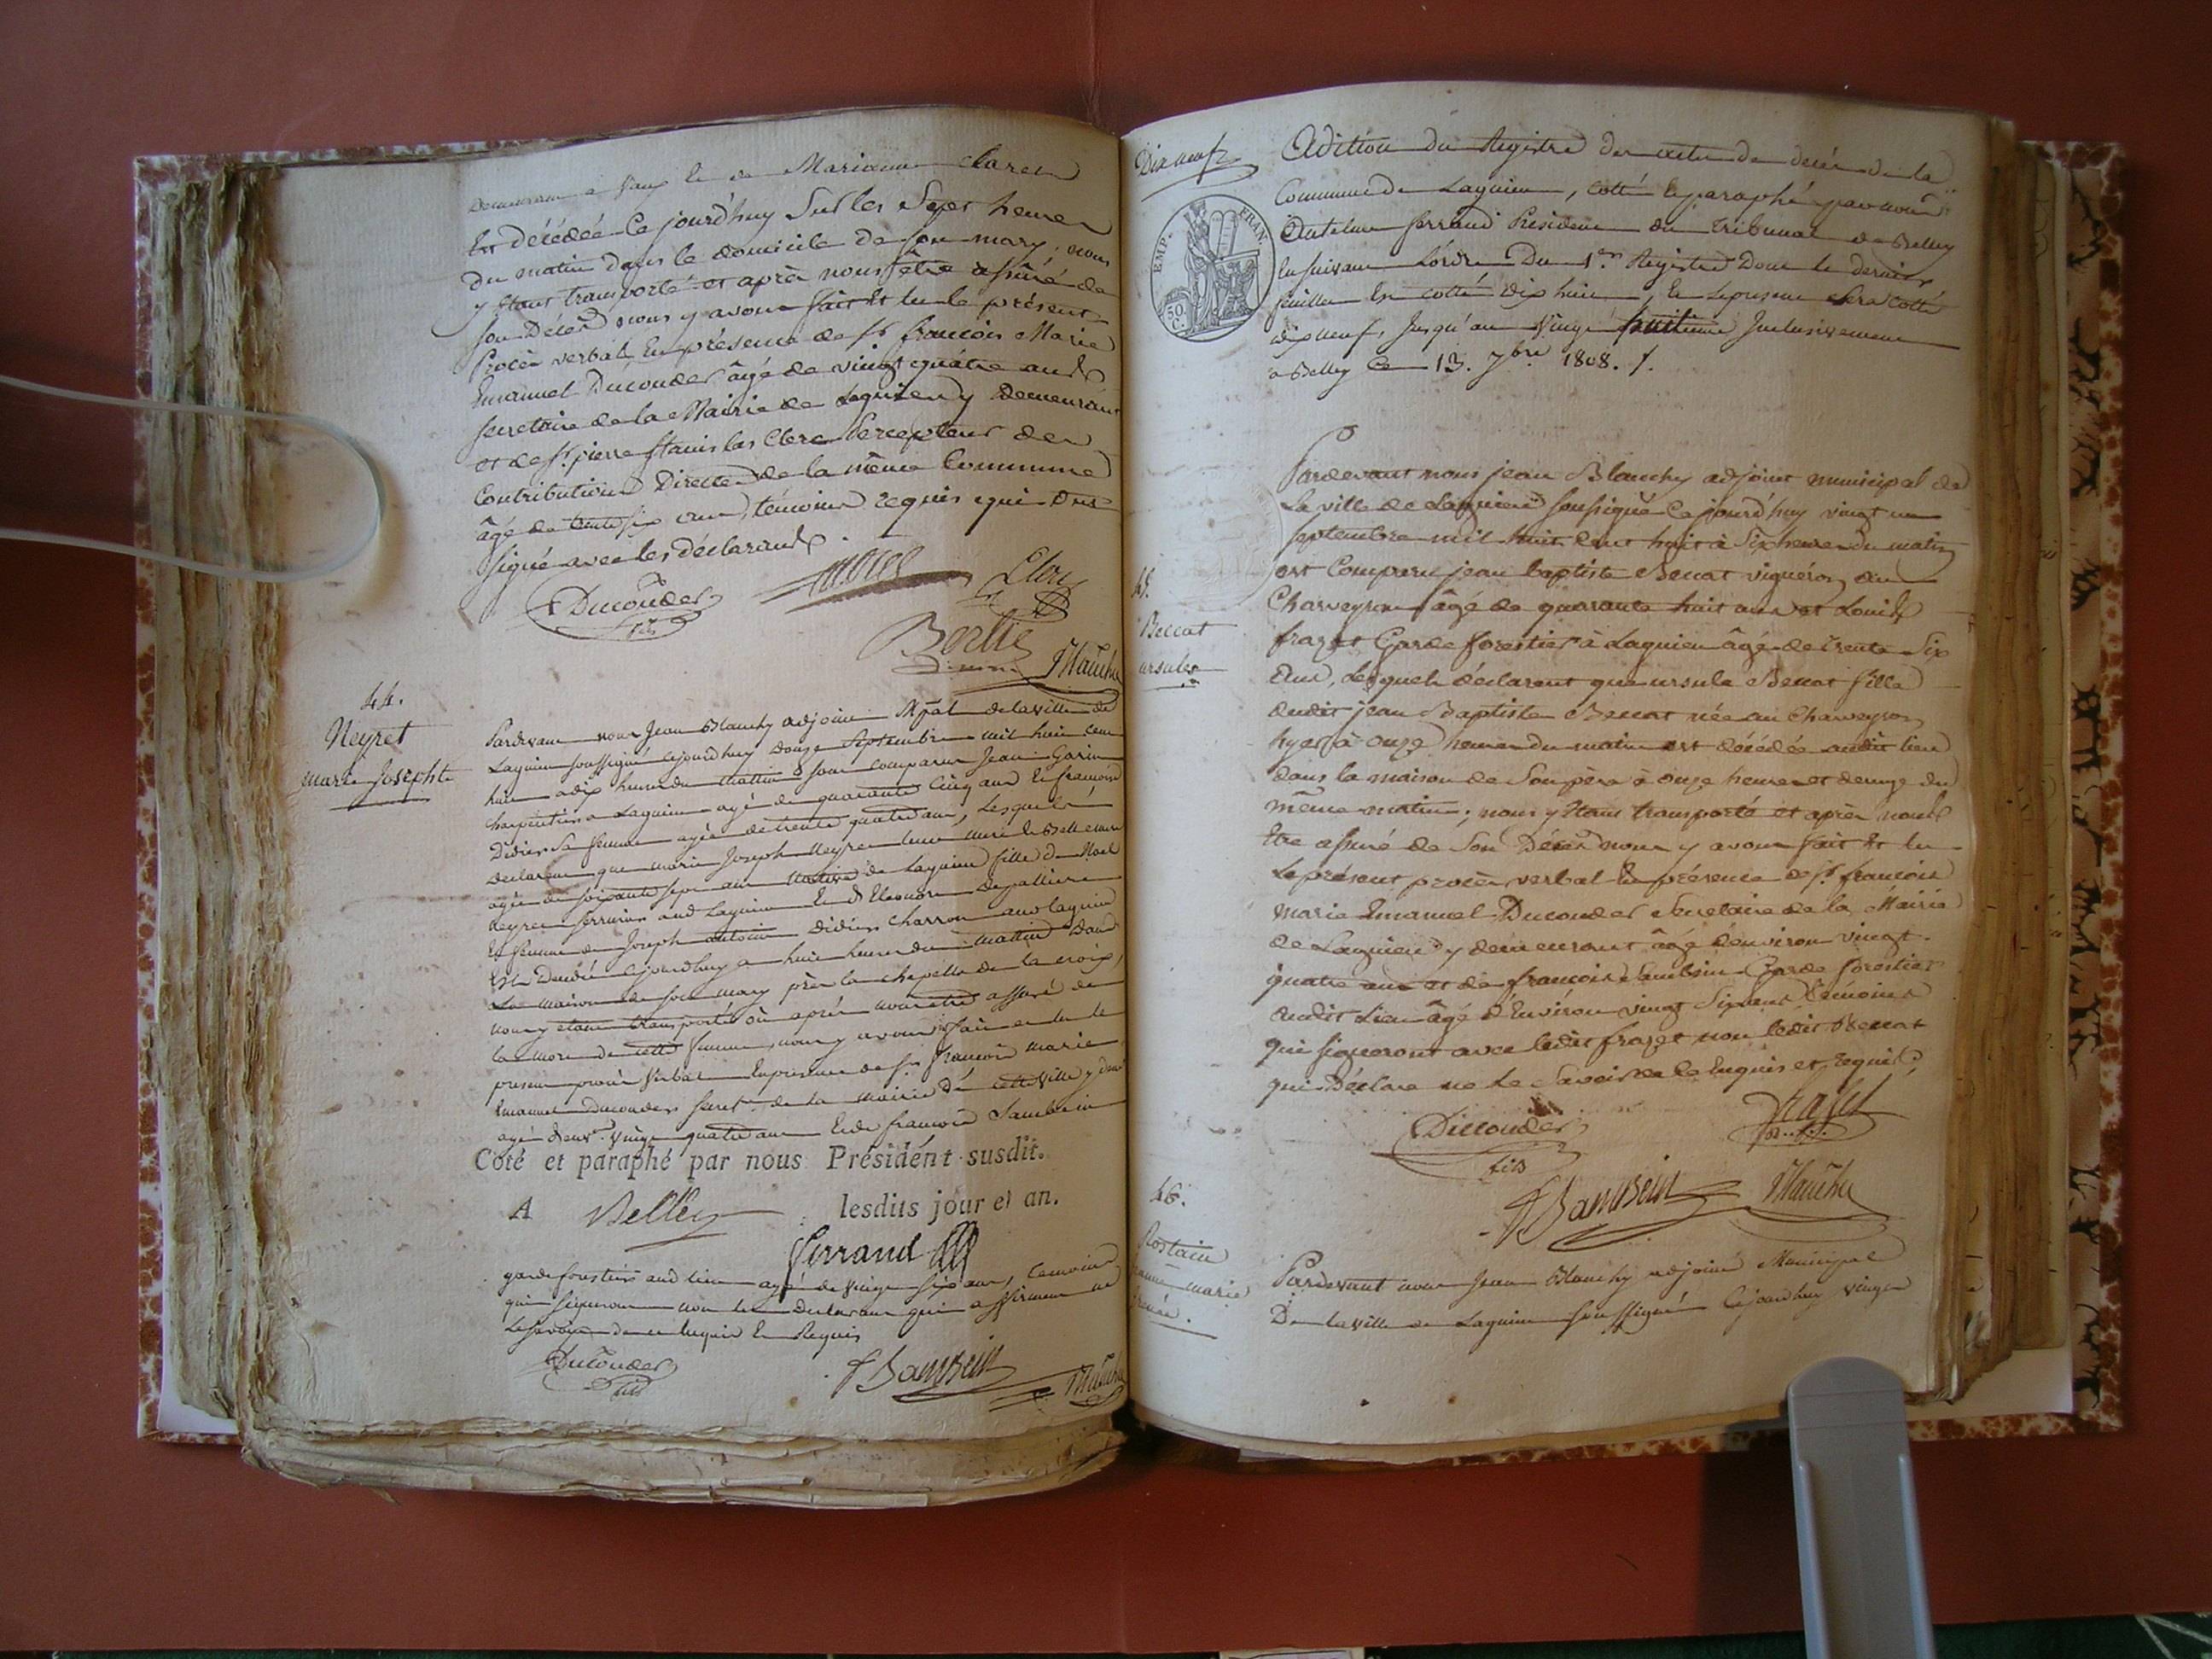 Demeurant a Vaux Et de Marianne Claret
Est décédée Ce jourd'huy Sur les Sept heures
Du matin dans le domicile De Son mary, nous
y Etant transporté et après nous être assuré de
Son Décès nous y avons fait Et lu le présent
Procès verbal En présence de Sr. françois Marie
Emanuel Ducouder âgé de vingt quatre ans
Secretaire de la Mairie de Lagnieu y Demeurant
et de Sr. pierre Stanislas Clerc Percepteur des
Contributions Directes de la même Commune
âgé de trente six ans, témoins requis qui ont
Signé avec les déclarants.
Ducouder
fils
Clerc
Berlie
JBlanchy
44.
Neyret
marie Josephte
Pardevant nous Jean Blanchy adjoint Mpāl de la ville de
Lagnieu soussigné cejourdhuy Douze Septembre mil huit cent
huit a dix heures du matin sont comparus Jean Garin
charpentier a Lagnieu agé de quarante Cinq ans Et francoise
Didier Sa femme agée de trente quatre ans, Lesquels
Declarent que marie Joseph Neyret
agée de soixante sept ans Native de Lagnieu fille de Noel
Neyret Serrurier aud Lagnieu Et d' Eleonore Depalliere
Et femme de Joseph antoine Didier Charron aud lagnieu
Est Decedée cejourdhuy a huit heures du matin Dans
La maison de son mary près la chapelle de la croix,
nous y etant transporté où après nous etre assuré de
la mort de cette femme, nous y avons fait et lu le
present procès Verbal En presence de Sr. francois marie
Emanuel Ducouder Secret. de la mairie de cette ville y demt
agé d'envn. Vingt quatre ans Et de francois Sambein
Coté et paraphé par nous Président susdit.
A Belley lesdits jour et an.
Ferrand
garde forestier aud lieu agé de Vingt six ans, temoins
qui signeront non les Declarants qui affirment ne
Le savoir de ce Enquis Et Requis
Ducouder
fils
f Sambein
JBlanchy
Dix neuf
EMP. FRAN.
50 C.
Adition du Registre des actes de décés de la
Commune de Lagnieu, cotté & paraphé par nous
Antelme ferrand Président du Tribunal de Belley
En suivant L'ordre Du 1er. Registre Dont le dernier
feuillet Est cotté dix huit, & le present Sera Cotté
dix neuf, Jusqu'au Vingt huitieme Inclusivement
a Belley Ce 13. 7bre 1808. /.
45.
Beccat
ursule
Pardevant nous jean Blanchy adjoint municipal de
La ville de Lagnieu soussigné Ce jourd'huy vingt un
Septembre mil huit Cent huit à Six heures du matin
ont Comparu jean baptiste Beccat vigneron au
Charveyron âgé de quarante huit ans et Louis
frazet Garde forestier à Lagnieu âgé de trente Six
Ans, Lesquels déclarent que ursule Beccat fille
dudit jean Baptiste Beccat née au Charveyron
hyer à onze heures du matin est décédée audit lieu
dans la maison de Son père à onze heures et demye du
même matin; nous y Etant transporté et après nous
Etre assuré de Son Décès nous y avons fait Et lu
Le présent procès verbal En présence de Sr. francois
Marie Emanuel Ducouder Secretaire de la Mairie
de Lagnieu y demeurant âgé d'environ vingt
quatre ans et de francois Sambein Garde forestier
audit Lieu âgé d'Environ vingt Six ans témoins
qui Signeront avec ledit frazet non ledit Beccat
qui Déclare ne Le Savoir de ce Enquis et requis.
Ducouder
fils
frazet
f Sambein
JBlanchy
46.
Rostain
marie
Pardevant nous Jean Blanchy adjoint Municipal
De la ville de Lagnieu soussigné Cejourdhuy vingt